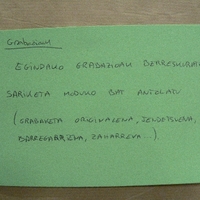 Grabazioak
EGINDAKO GRABAZIOAK BERRESKURATU
SARIKETA MODUKO BAT ANTOLATU
(GRABAKETA ORIGINALENA, JENDETSUENA,
BARREGARRIENA, ZAHARRENA...)